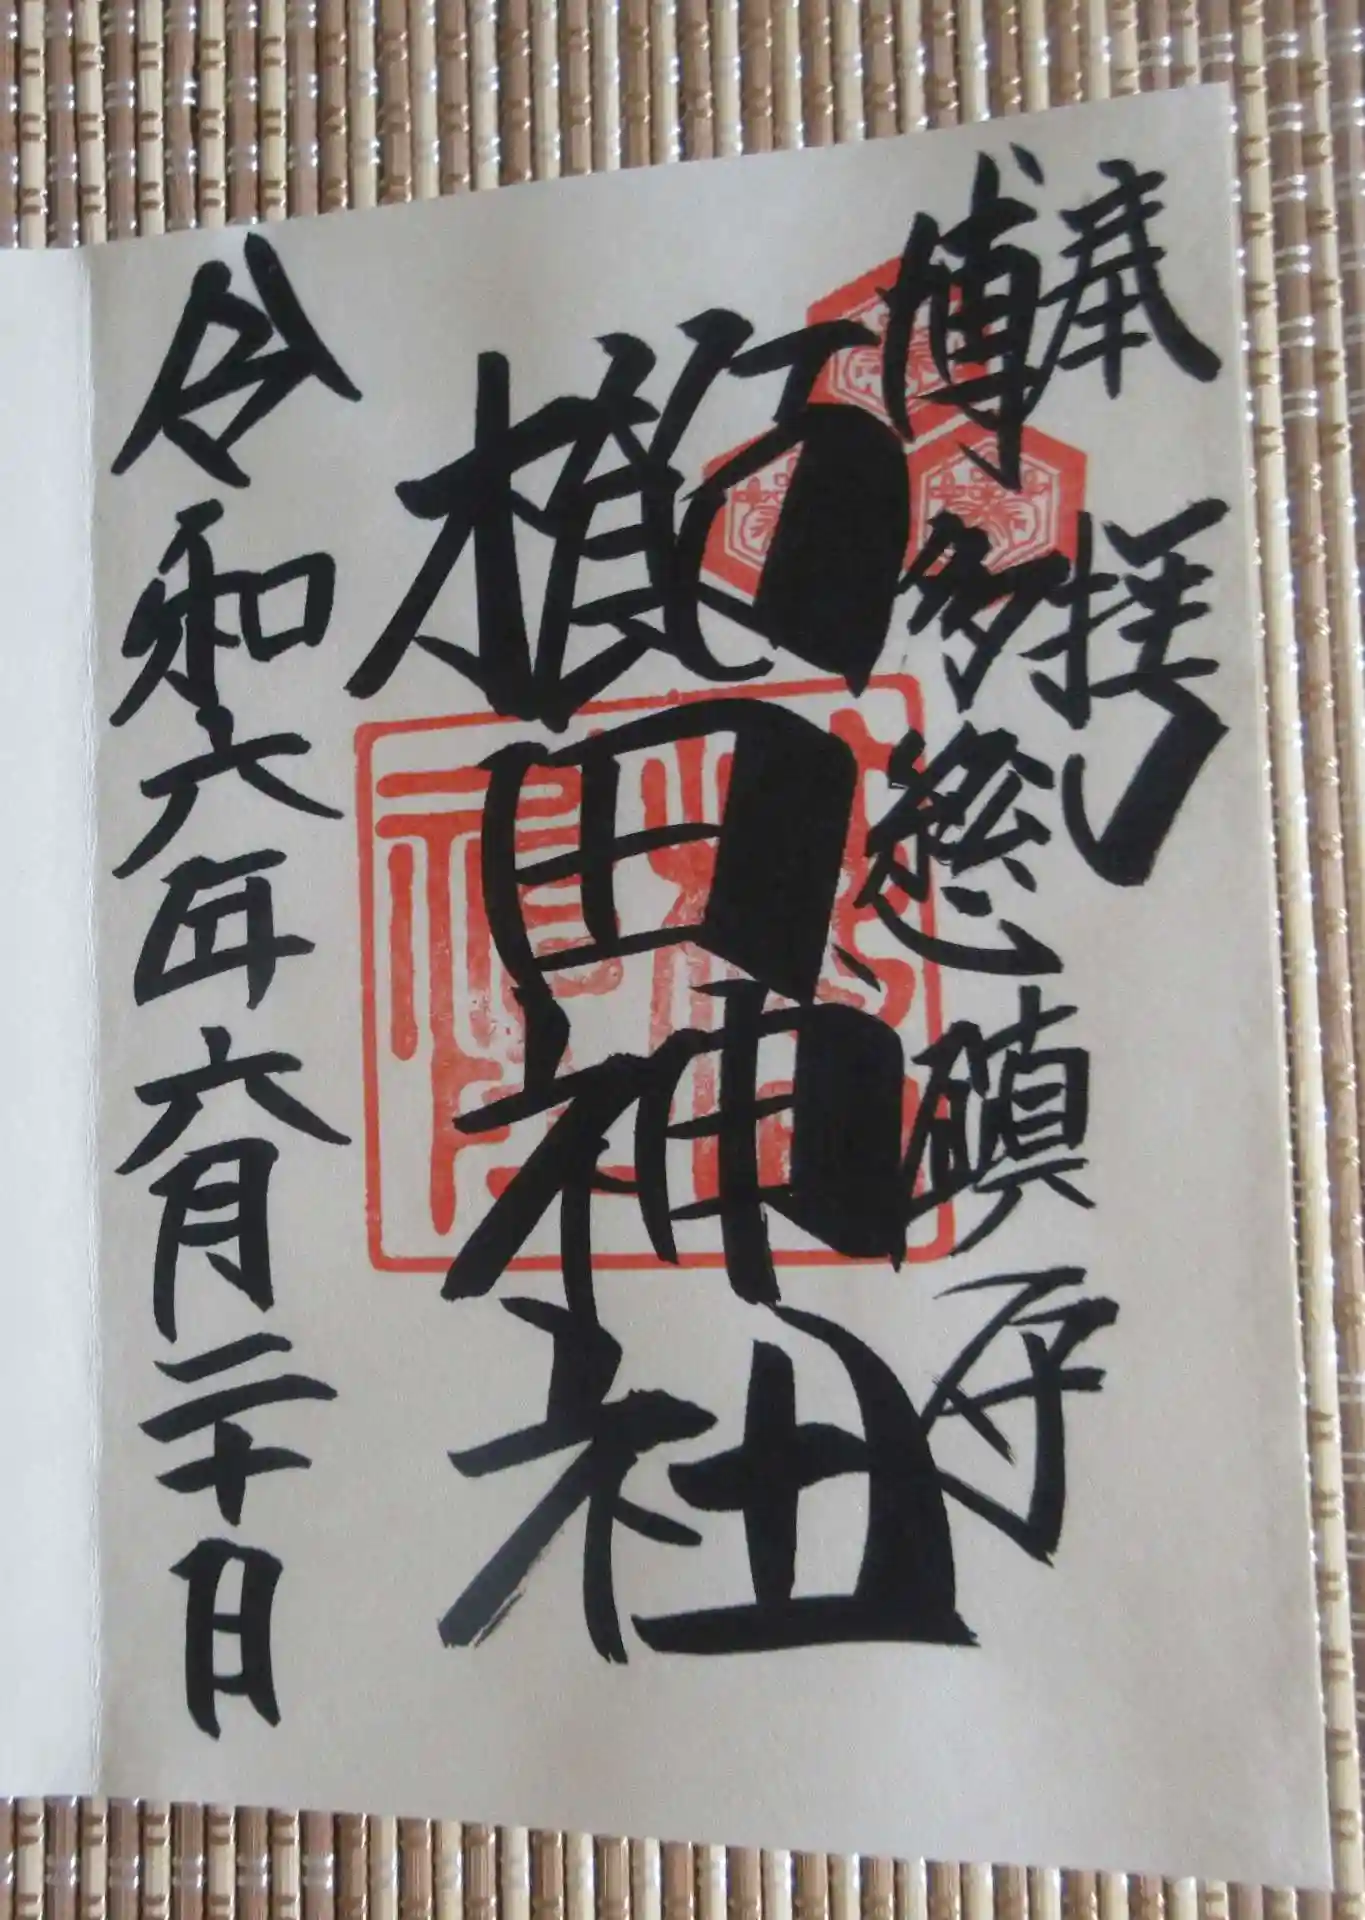 奉拝
博多總鎮守
櫛田神社
令和六年六月二十日